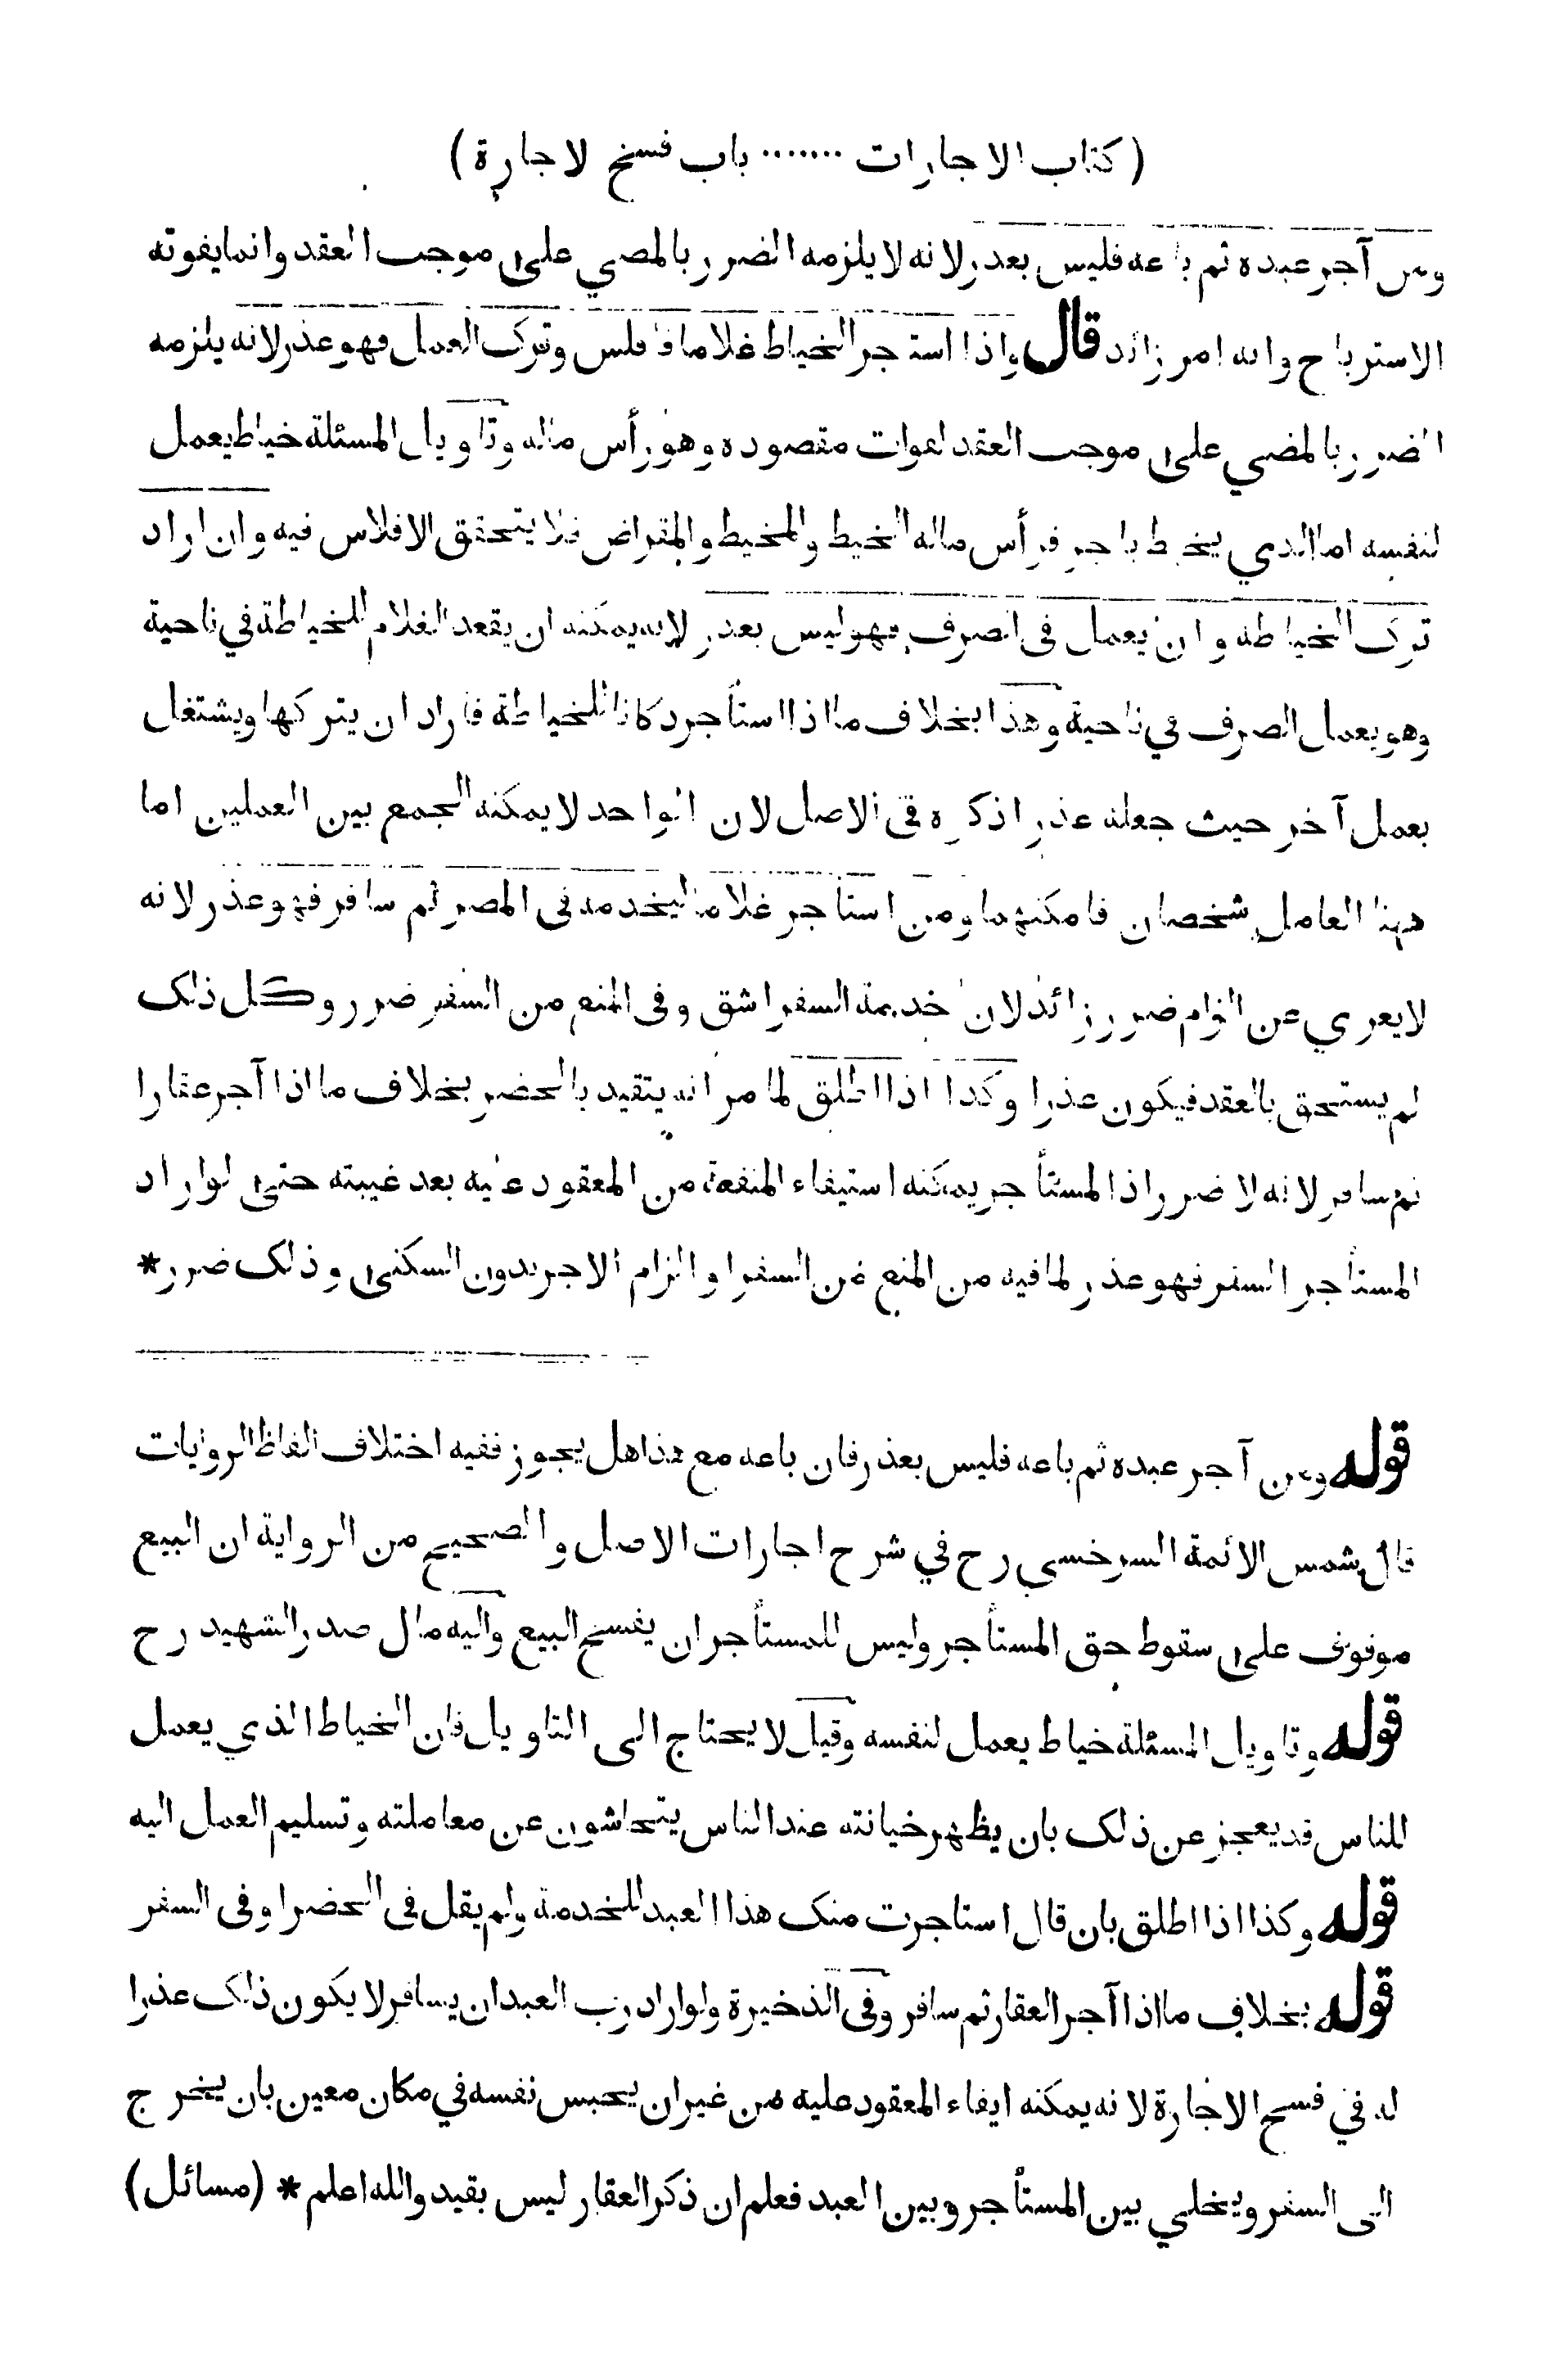 (كتاب الاجارات ....... باب فسخ الاجارة)
ومن آجر عبده ثم باعه فليس بعذر لانه لا يلزمه الضرر بالمضي على موجب العقد وانما يفوته
الاسترباح وانه امر زائد قال واذا استاجر الخياط غلاما فافلس وترك العمل فهو عذر لانه يلزمه
الضرر بالمضي على موجب العقد لفوات مقصوده وهو رأس ماله وتاويل المسئلة خياط يعمل
لنفسه اما الذي يخيط باجر فرأس ماله الخيط والمخيط والمقراض فلا يتحقق الافلاس فيه وان اراد
ترك الخياطة وان يعمل فى الصرف فهو ليس بعذر لانه يمكنه ان يقعد الغلام للخياطة في ناحية
وهو يعمل الصرف في ناحية وهذا بخلاف ما اذا استأجر دكانا للخياطة فاراد ان يتركها ويشتغل
بعمل آخر حيث جعله عذرا ذكره فى الاصل لان الواحد لا يمكنه الجمع بين العملين اما
ههنا العامل شخصان فامكنهما ومن استأجر غلاما ليخدمه فى المصر ثم سافر فهو عذر لانه
لا يعري عن الزام ضرر زائد لان خدمة السفر اشق وفى المنع من السفر ضرر وكل ذلك
لم يستحق بالعقد فيكون عذرا وكذا اذا اطلق لما مر انه يتقيد بالحضر بخلاف ما اذا آجر عقارا
ثم سافر لانه لا ضرر اذ المستأجر يمكنه استيفاء المنفعة من المعقود عليه بعد غيبته حتى لو اراد
المستأجر السفر فهو عذر لما فيه من المنع عن السفر او الزام الاجر بدون السكنى وذلك ضرر *
قوله ومن آجر عبده ثم باعه فليس بعذر فان باعه مع هذا هل يجوز ففيه اختلاف الفاظ الروايات
قال شمس الائمة السرخسي رح في شرح اجارات الاصل والصحيح من الرواية ان البيع
موقوف على سقوط حق المستأجر وليس للمستأجر ان يفسخ البيع واليه مال صدر الشهيد رح
قوله وتاويل المسئلة خياط يعمل لنفسه وقيل لا يحتاج الى التاويل فان الخياط الذي يعمل
للناس قد يعجز عن ذلك بان يظهر خيانته عند الناس يتحاشون عن معاملته وتسليم العمل اليه
قوله وكذا اذا اطلق بان قال استاجرت منك هذا العبد للخدمة ولم يقل فى الحضر او فى السفر
قوله بخلاف ما اذا آجر العقار ثم سافر وفى الذخيرة ولو اراد رب العبد ان يسافر لا يكون ذلك عذرا
له في فسخ الاجارة لانه يمكنه ايفاء المعقود عليه من غير ان يحبس نفسه في مكان معين بان يخرج
الى السفر ويخلي بين المستأجر وبين العبد فعلم ان ذكر العقار ليس بقيد والله اعلم * (مسائل)